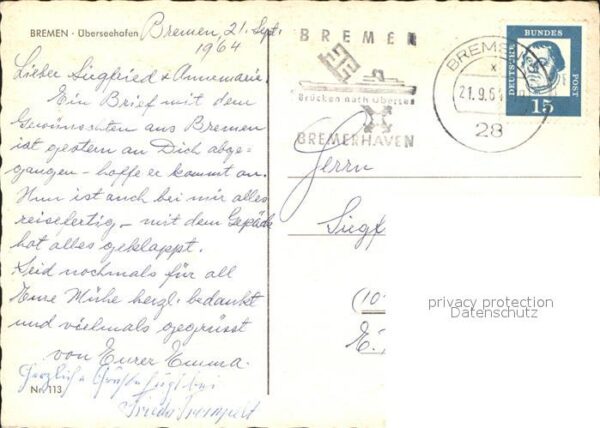 BREMEN · Überseehafen
Bremen, 21. Sept.
1964
Lieber Siegfried & Annemarie!
Ein Brief mit dem
Gewünschten aus Bremen
ist gestern an Dich abge-
gangen - hoffe er kommt an.
Nun ist auch bei mir alles
reisefertig - mit dem Gepäck
hat alles geklappt.
Seid nochmals für all
Eure Mühe herzl. bedankt
und vielmals gegrüsst
von Eurer Emma.
Herzliche Grüße fügt bei
Frieda
Nr. 113
BREMEN
Brücken nach Übersee
BREMERHAVEN
BREMEN
21.9.64
28
DEUTSCHE BUNDES POST
15
Herrn
Siegf
(10
privacy protection
Datenschutz